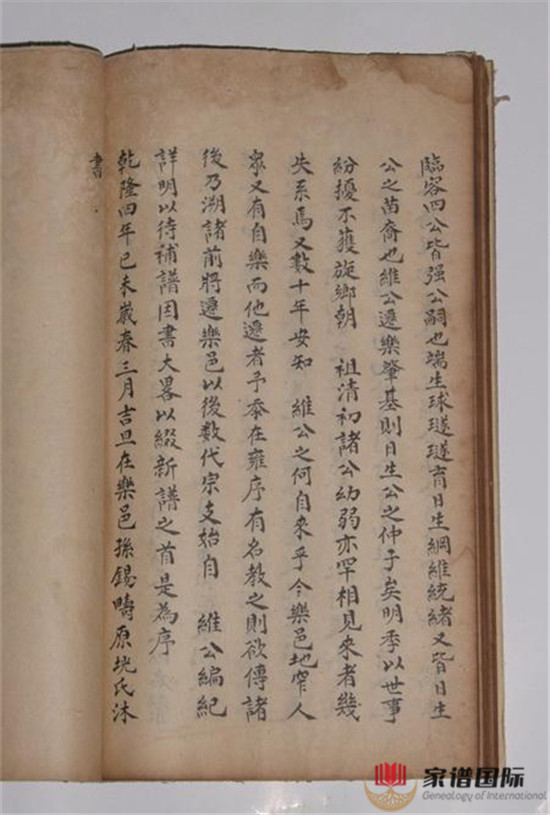 臨容四公皆强公嗣也端生球璲璲育日生綱維統緒又皆日生
公之苗裔也維公遷樂肇基則日生公之仲子矣明季以世事
紛擾不獲旋鄉朝 祖清初諸公幼弱亦罕相見來者幾
失系焉又數十年安知 維公之何自來乎今樂邑地窄人
衆又有自樂而他遷者予忝在雍序有名教之則欲傳諸
後乃溯諸前將遷樂邑以後數代宗支始自 維公編紀
詳明以待補譜因書大畧以綴新譜之首是為序
乾隆四年已未嵗春三月吉旦在樂邑孫錫疇原垙氏沐
書
家谱国际
Genealogy of International